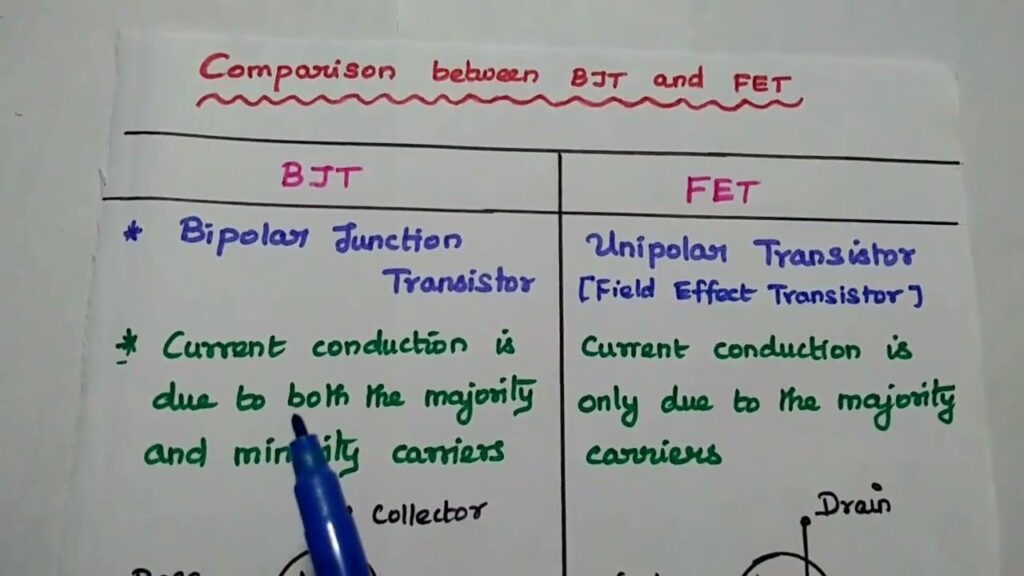 Comparison between BJT and FET
BJT
FET
* Bipolar Junction
Transistor
Unipolar Transistor
[Field Effect Transistor]
* Current conduction is
due to both the majority
and minority carriers
Current conduction is
only due to the majority
carriers
Collector
Drain